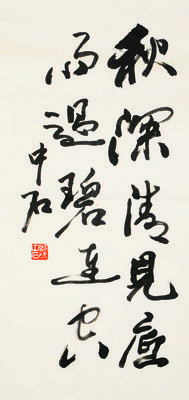 秋深清見底
雨過碧連空
中石